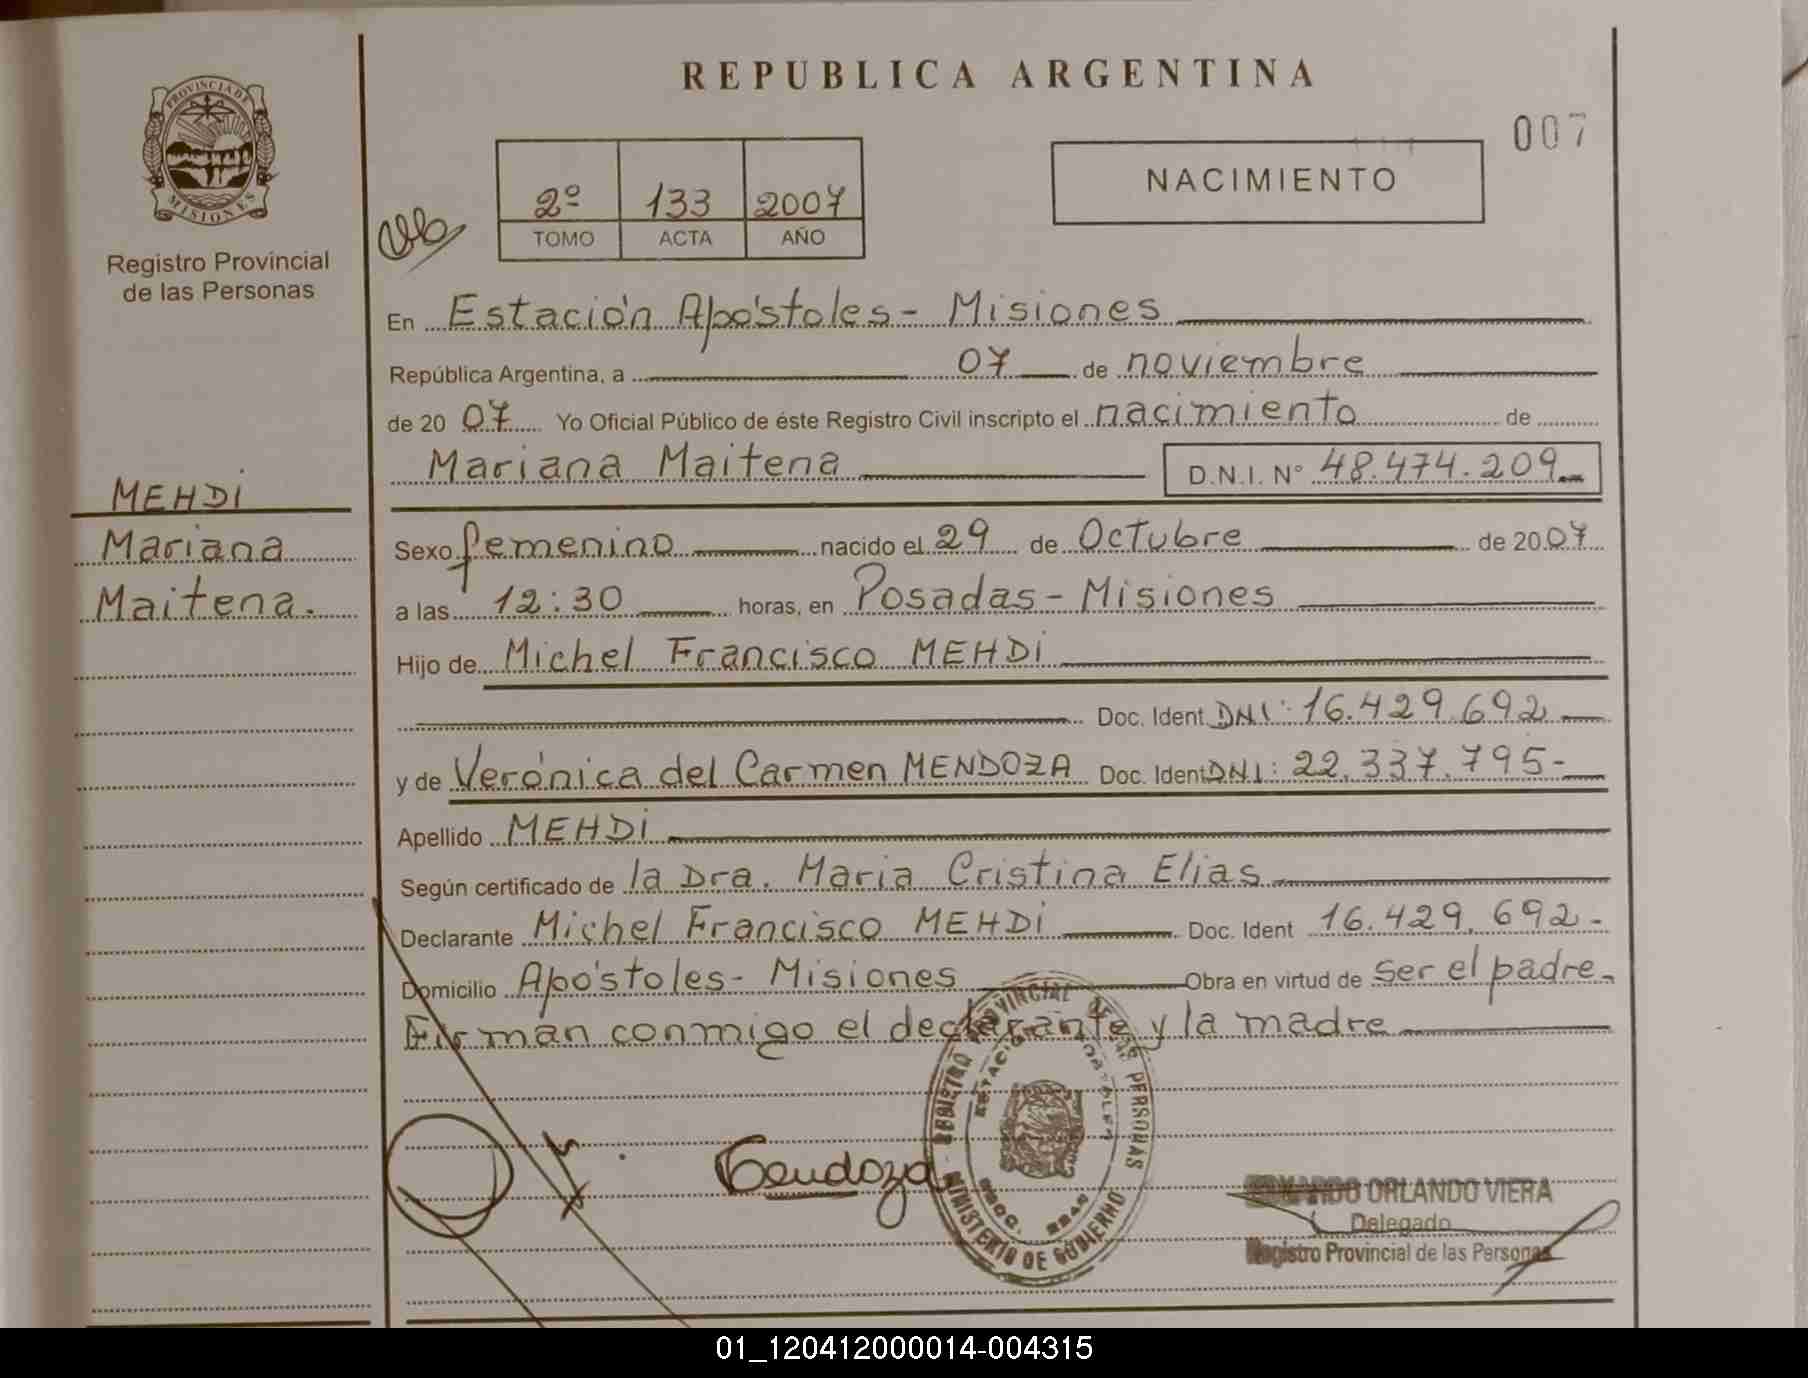 REPUBLICA ARGENTINA
007
PROVINCIA DE
MISIONES
Registro Provincial
de las Personas
NACIMIENTO
2º 133 2007
TOMO ACTA AÑO
En Estación Apóstoles - Misiones
República Argentina, a 07 de noviembre
de 20 07 Yo Oficial Público de éste Registro Civil inscripto el nacimiento de
Mariana Maitena D.N.I. N° 48.474.209
MEHDI
Mariana
Maitena.
Sexo femenino nacido el 29 de Octubre de 20 07
a las 12:30 horas, en Posadas - Misiones
Hijo de Michel Francisco MEHDI
Doc. Ident DNI: 16.429.692
y de Verónica del Carmen MENDOZA Doc. Ident DNI: 22.337.795-
Apellido MEHDI
Según certificado de la Dra. Maria Cristina Elias
Declarante Michel Francisco MEHDI Doc. Ident 16.429.692-
Domicilio Apóstoles - Misiones Obra en virtud de ser el padre.
Firman conmigo el declarante y la madre
REGISTRO PROVINCIAL DE LAS PERSONAS
MINISTERIO DE GOBIERNO
Mendoza
ORLANDO VIERA
Delegado
Registro Provincial de las Personas
01_120412000014-004315